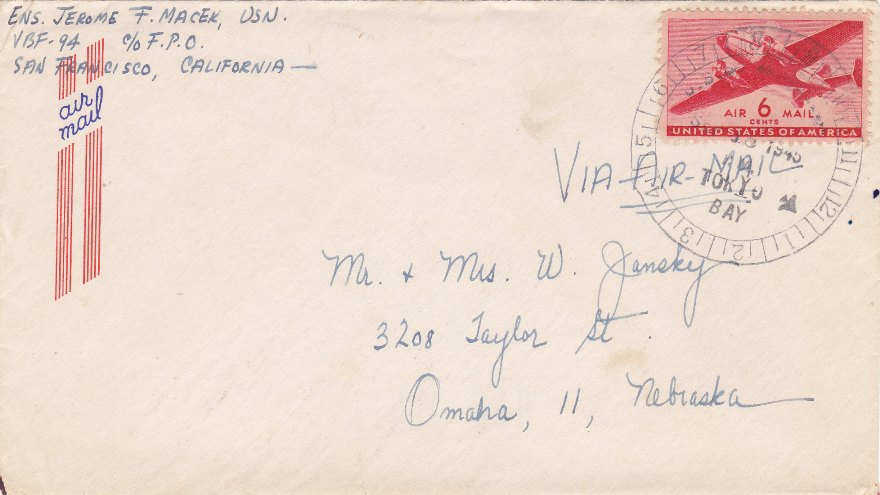 ENS. JEROME F. MACEK, USN.
VBF-94 c/o F.P.O.
SAN FRANCISCO, CALIFORNIA —
air
mail
AIR 6 MAIL
CENTS
UNITED STATES OF AMERICA
1945
TOKYO
BAY
VIA AIR-MAIL
Mr. + Mrs. W. Jansky
3208 Taylor St.
Omaha, 11, Nebraska